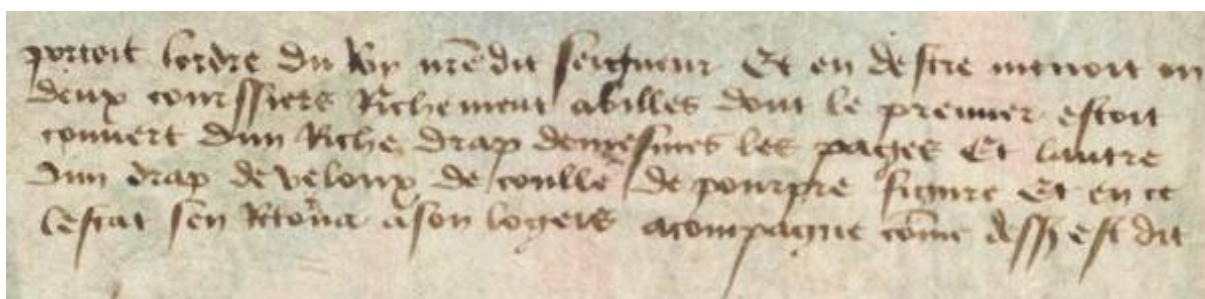 portoit lordre du Roy nrẽ dit seigneur Et en destre menoit on
deux courssiers Richement abilles dont le premier estoit
couvert dun Riche drap demesmes les pages Et lautre
dun drap de veloux de coulle de pourpre figure Et en ce
lestat sen Retorna a son logeis acompagne cõme dessus est dit